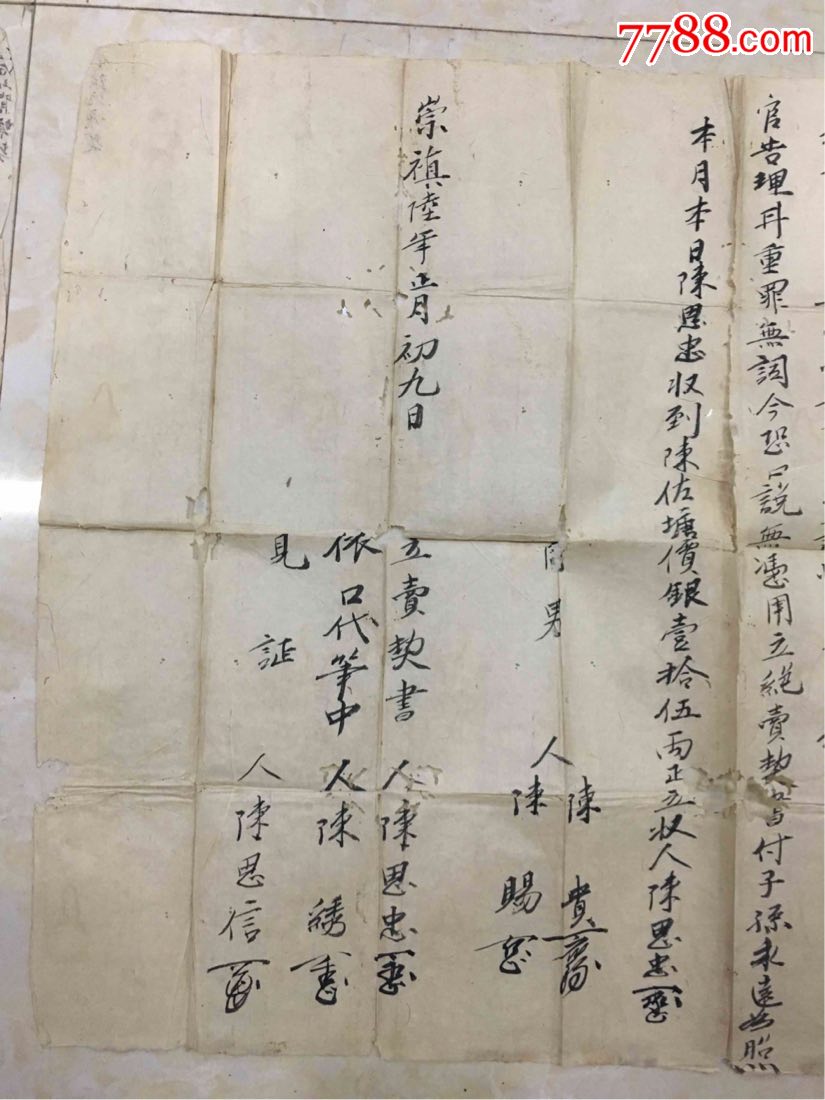 7788.com
官告理再重罪無詞今恐口說無憑用立絕賣契書付子孫永遠為照
本月本日陳思忠収到陳佐塘價銀壹拾伍両正立収人陳思忠
同男人陳貴
陳賜
崇禎陸年正月初九日
立賣契書人陳思忠
依口代筆中人陳
見証人陳思信